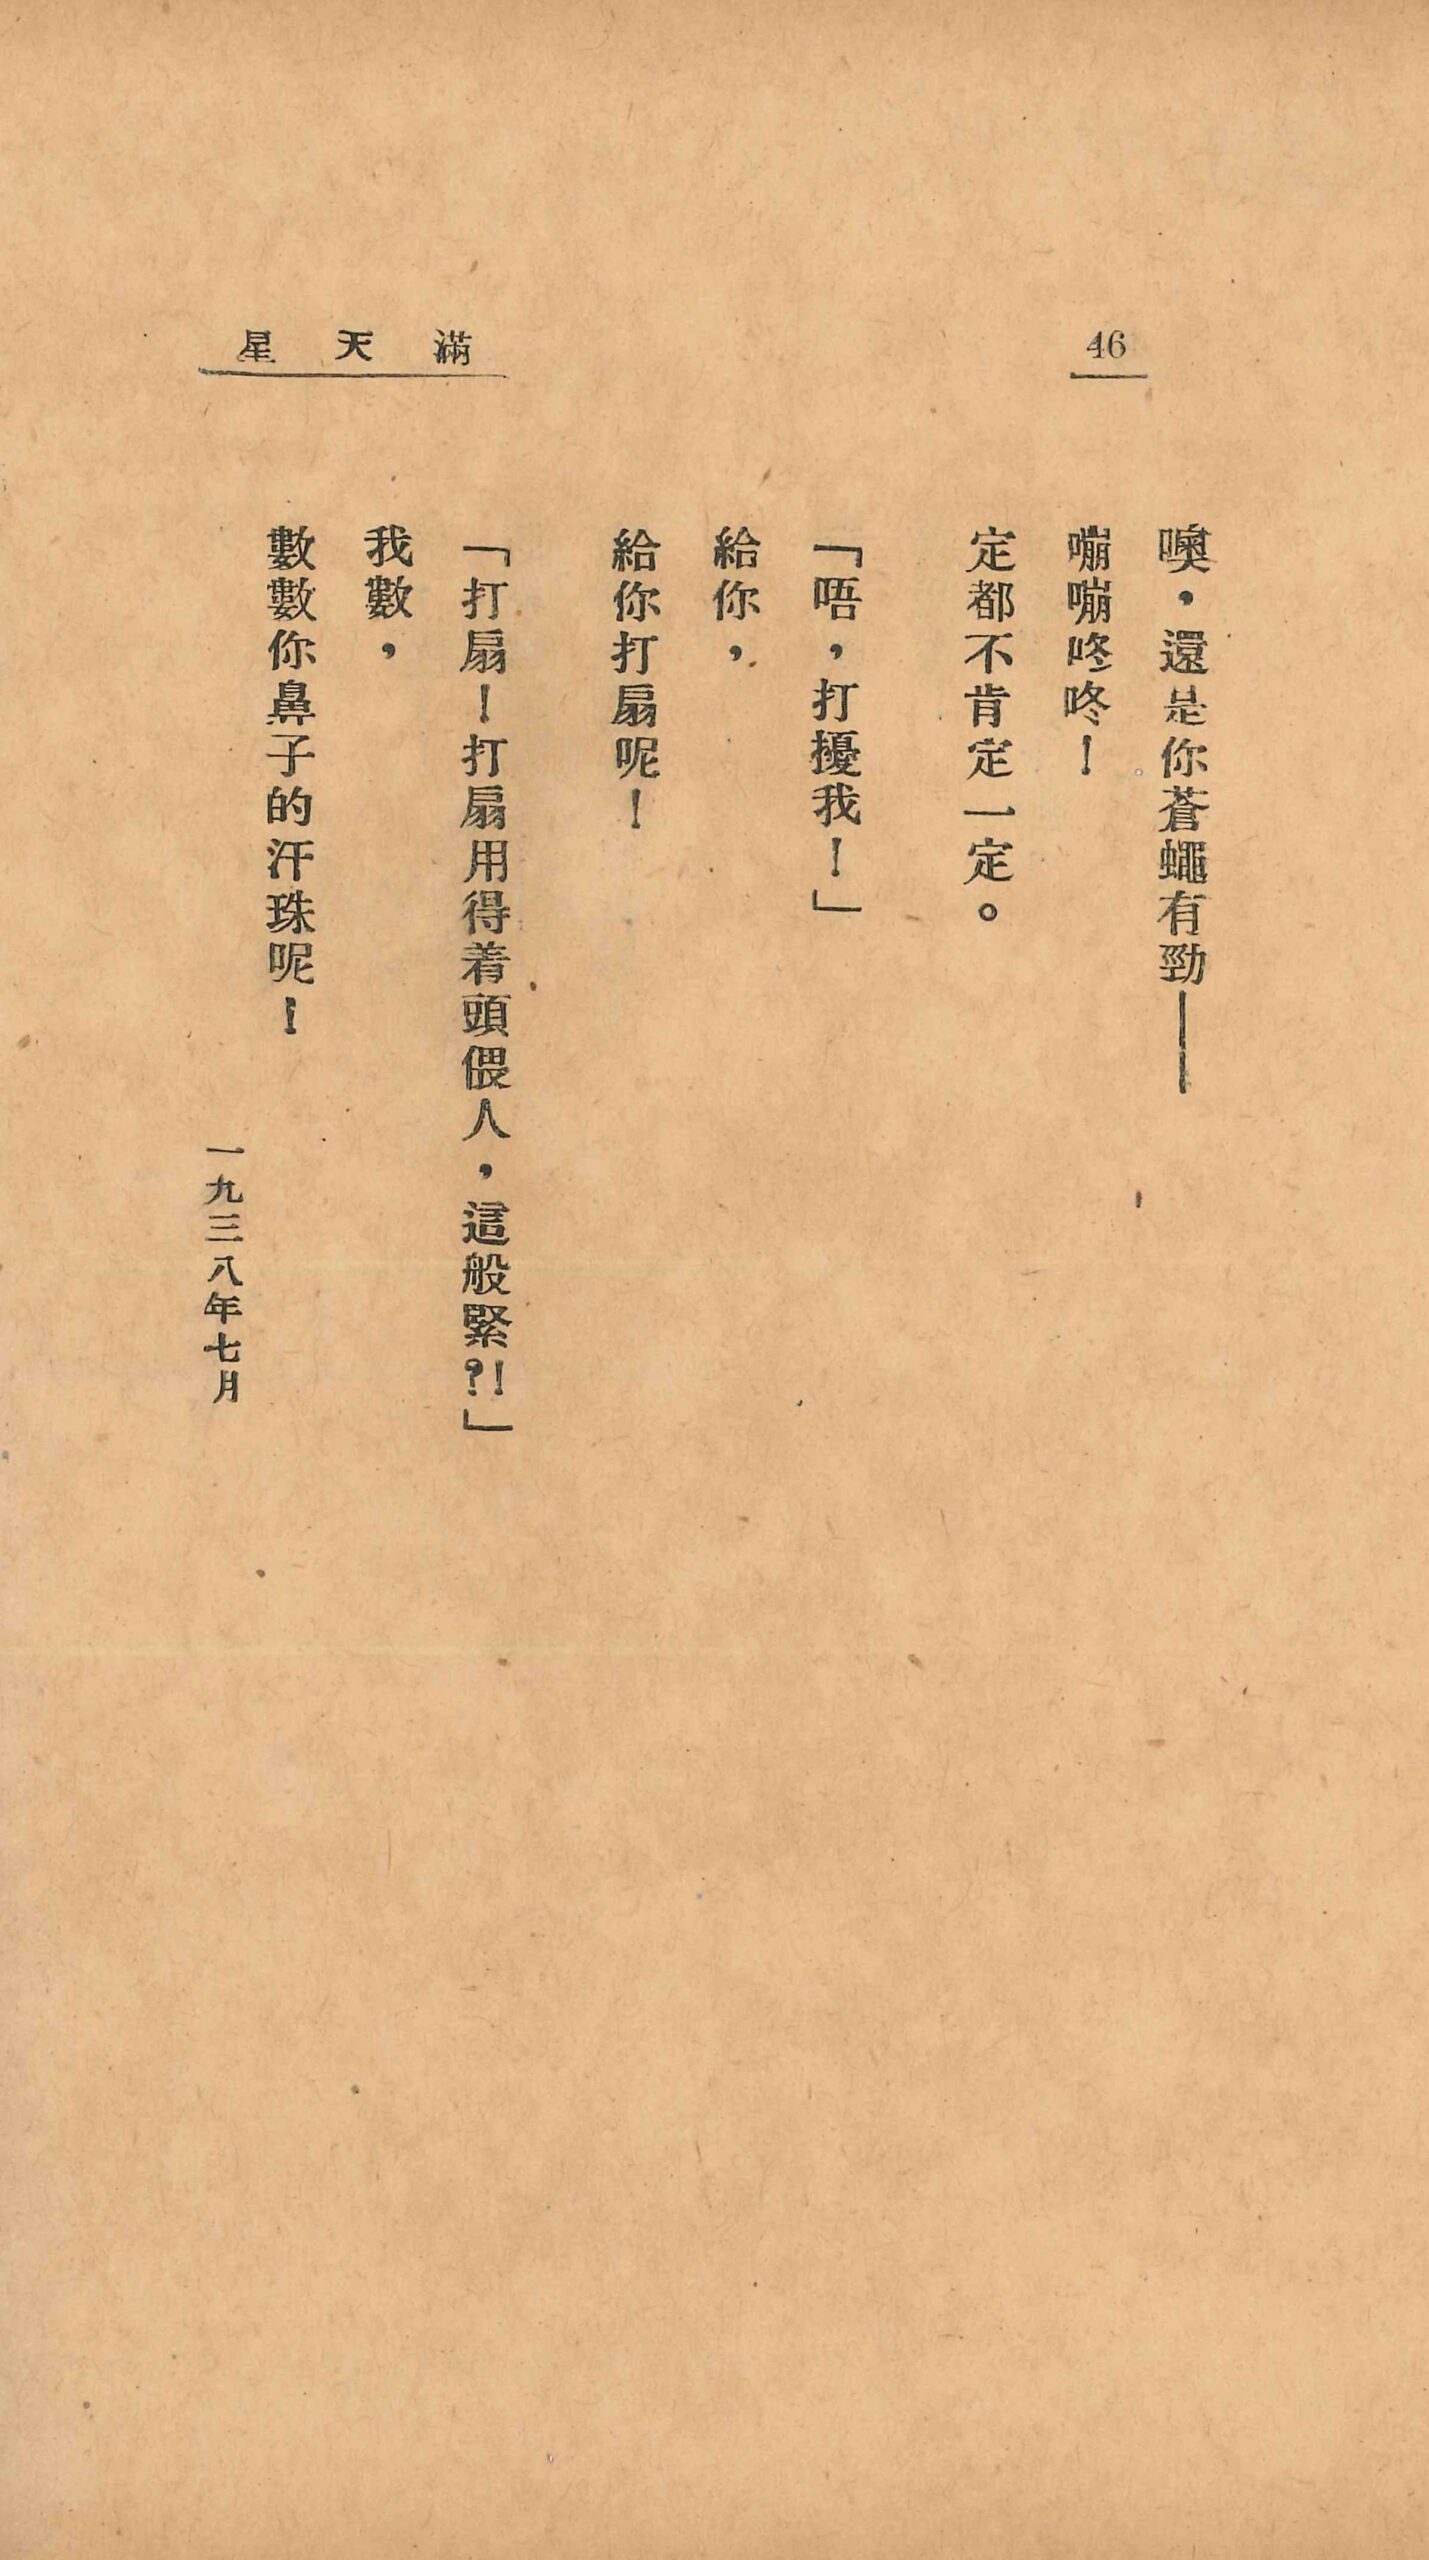 46
滿天星
噢，還是你蒼蠅有勁——
嘣嘣咚咚！
定都不肯定一定。
「唔，打擾我！」
給你，
給你打扇呢！
「打扇！打扇用得着頭偎人，這般緊?!」
我數，
數數你鼻子的汗珠呢！
一九三八年七月